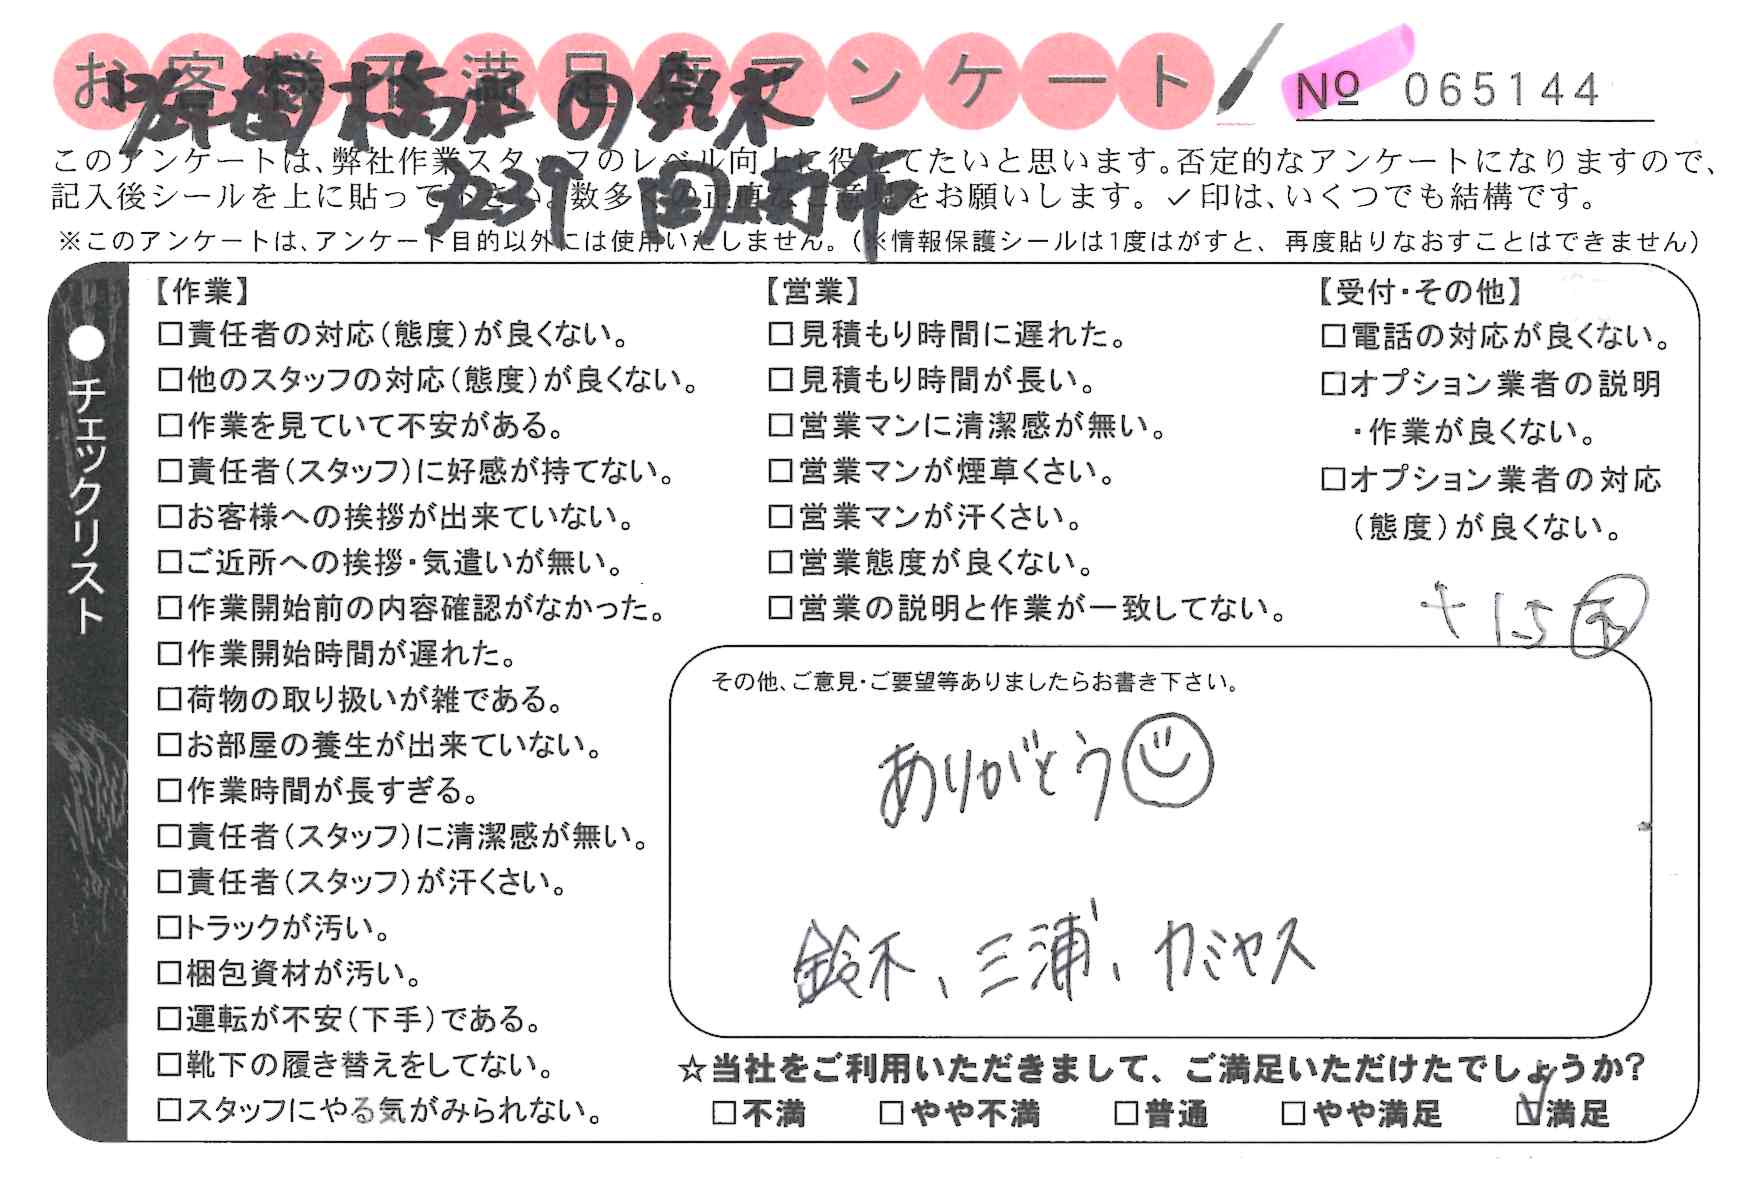 お客様不満足度アンケート
№ 065144
の鈴木
3239
このアンケートは、弊社作業スタッフのレベル向上に役立てたいと思います。否定的なアンケートになりますので、
記入後シールを上に貼って下さい。数多くの正直なご意見をお願いします。✓印は、いくつでも結構です。
※このアンケートは、アンケート目的以外には使用いたしません。(※情報保護シールは1度はがすと、再度貼りなおすことはできません)
●チェックリスト
【作業】
□責任者の対応(態度)が良くない。
□他のスタッフの対応(態度)が良くない。
□作業を見ていて不安がある。
□責任者(スタッフ)に好感が持てない。
□お客様への挨拶が出来ていない。
□ご近所への挨拶・気遣いが無い。
□作業開始前の内容確認がなかった。
□作業開始時間が遅れた。
□荷物の取り扱いが雑である。
□お部屋の養生が出来ていない。
□作業時間が長すぎる。
□責任者(スタッフ)に清潔感が無い。
□責任者(スタッフ)が汗くさい。
□トラックが汚い。
□梱包資材が汚い。
□運転が不安(下手)である。
□靴下の履き替えをしてない。
□スタッフにやる気がみられない。
【営業】
□見積もり時間に遅れた。
□見積もり時間が長い。
□営業マンに清潔感が無い。
□営業マンが煙草くさい。
□営業マンが汗くさい。
□営業態度が良くない。
□営業の説明と作業が一致してない。
【受付・その他】
□電話の対応が良くない。
□オプション業者の説明
・作業が良くない。
□オプション業者の対応
(態度)が良くない。
+15
その他、ご意見・ご要望等ありましたらお書き下さい。
ありがとう
鈴木、三浦、カミヤス
☆当社をご利用いただきまして、ご満足いただけたでしょうか?
□不満 □やや不満 □普通 □やや満足 ☑満足